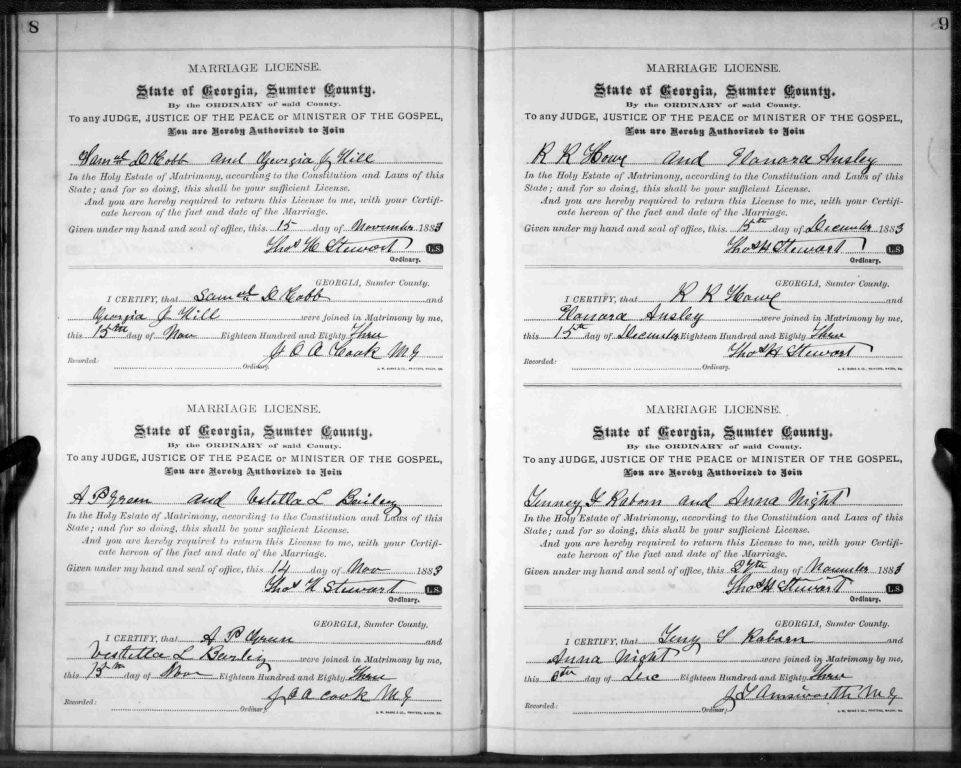 8
MARRIAGE LICENSE.
State of Georgia, Sumter County.
By the ORDINARY of said County.
To any JUDGE, JUSTICE OF THE PEACE or MINISTER OF THE GOSPEL,
You are Hereby Authorized to Join
Samul D Cobb and Georgia J Hill
In the Holy Estate of Matrimony, according to the Constitution and Laws of this
State; and for so doing, this shall be your sufficient License.
And you are hereby required to return this License to me, with your Certifi-
cate hereon of the fact and date of the Marriage.
Given under my hand and seal of office, this 15 day of November 1883
Thos H Stewart L.S.
Ordinary.
GEORGIA, Sumter County.
I CERTIFY, that Samul D Cobb and
Georgia J Hill were joined in Matrimony by me,
this 15th day of Nov Eighteen Hundred and Eighty Three
J O A Cook M G
Recorded: Ordinary.
MARRIAGE LICENSE.
State of Georgia, Sumter County.
By the ORDINARY of said County.
To any JUDGE, JUSTICE OF THE PEACE or MINISTER OF THE GOSPEL,
You are Hereby Authorized to Join
A P Green and Vestella L
In the Holy Estate of Matrimony, according to the Constitution and Laws of this
State; and for so doing, this shall be your sufficient License.
And you are hereby required to return this License to me, with your Certifi-
cate hereon of the fact and date of the Marriage.
Given under my hand and seal of office, this 14 day of Nov 1883
Thos H Stewart L.S.
Ordinary.
GEORGIA, Sumter County.
I CERTIFY, that A P Green and
Vestella L were joined in Matrimony by me,
this day of Nov Eighteen Hundred and Eighty Three
J O A Cook M G
Recorded: Ordinary.
9
MARRIAGE LICENSE.
State of Georgia, Sumter County.
By the ORDINARY of said County.
To any JUDGE, JUSTICE OF THE PEACE or MINISTER OF THE GOSPEL,
You are Hereby Authorized to Join
R R Howe and Elonora Ansley
In the Holy Estate of Matrimony, according to the Constitution and Laws of this
State; and for so doing, this shall be your sufficient License.
And you are hereby required to return this License to me, with your Certifi-
cate hereon of the fact and date of the Marriage.
Given under my hand and seal of office, this 15th day of December 1883
Thos H Stewart L.S.
Ordinary.
GEORGIA, Sumter County.
I CERTIFY, that R R Howe and
Elonora Ansley were joined in Matrimony by me,
this 15th day of December Eighteen Hundred and Eighty Three
Thos H Stewart
Recorded: Ordinary.
MARRIAGE LICENSE.
State of Georgia, Sumter County.
By the ORDINARY of said County.
To any JUDGE, JUSTICE OF THE PEACE or MINISTER OF THE GOSPEL,
You are Hereby Authorized to Join
Raborn and Anna Night
In the Holy Estate of Matrimony, according to the Constitution and Laws of this
State; and for so doing, this shall be your sufficient License.
And you are hereby required to return this License to me, with your Certifi-
cate hereon of the fact and date of the Marriage.
Given under my hand and seal of office, this 27th day of November 1883
Thos H Stewart L.S.
Ordinary.
GEORGIA, Sumter County.
I CERTIFY, that S Raborn and
Anna Night were joined in Matrimony by me,
this 6th day of Dec Eighteen Hundred and Eighty Three
J T Ainsworth M G
Recorded: Ordinary.